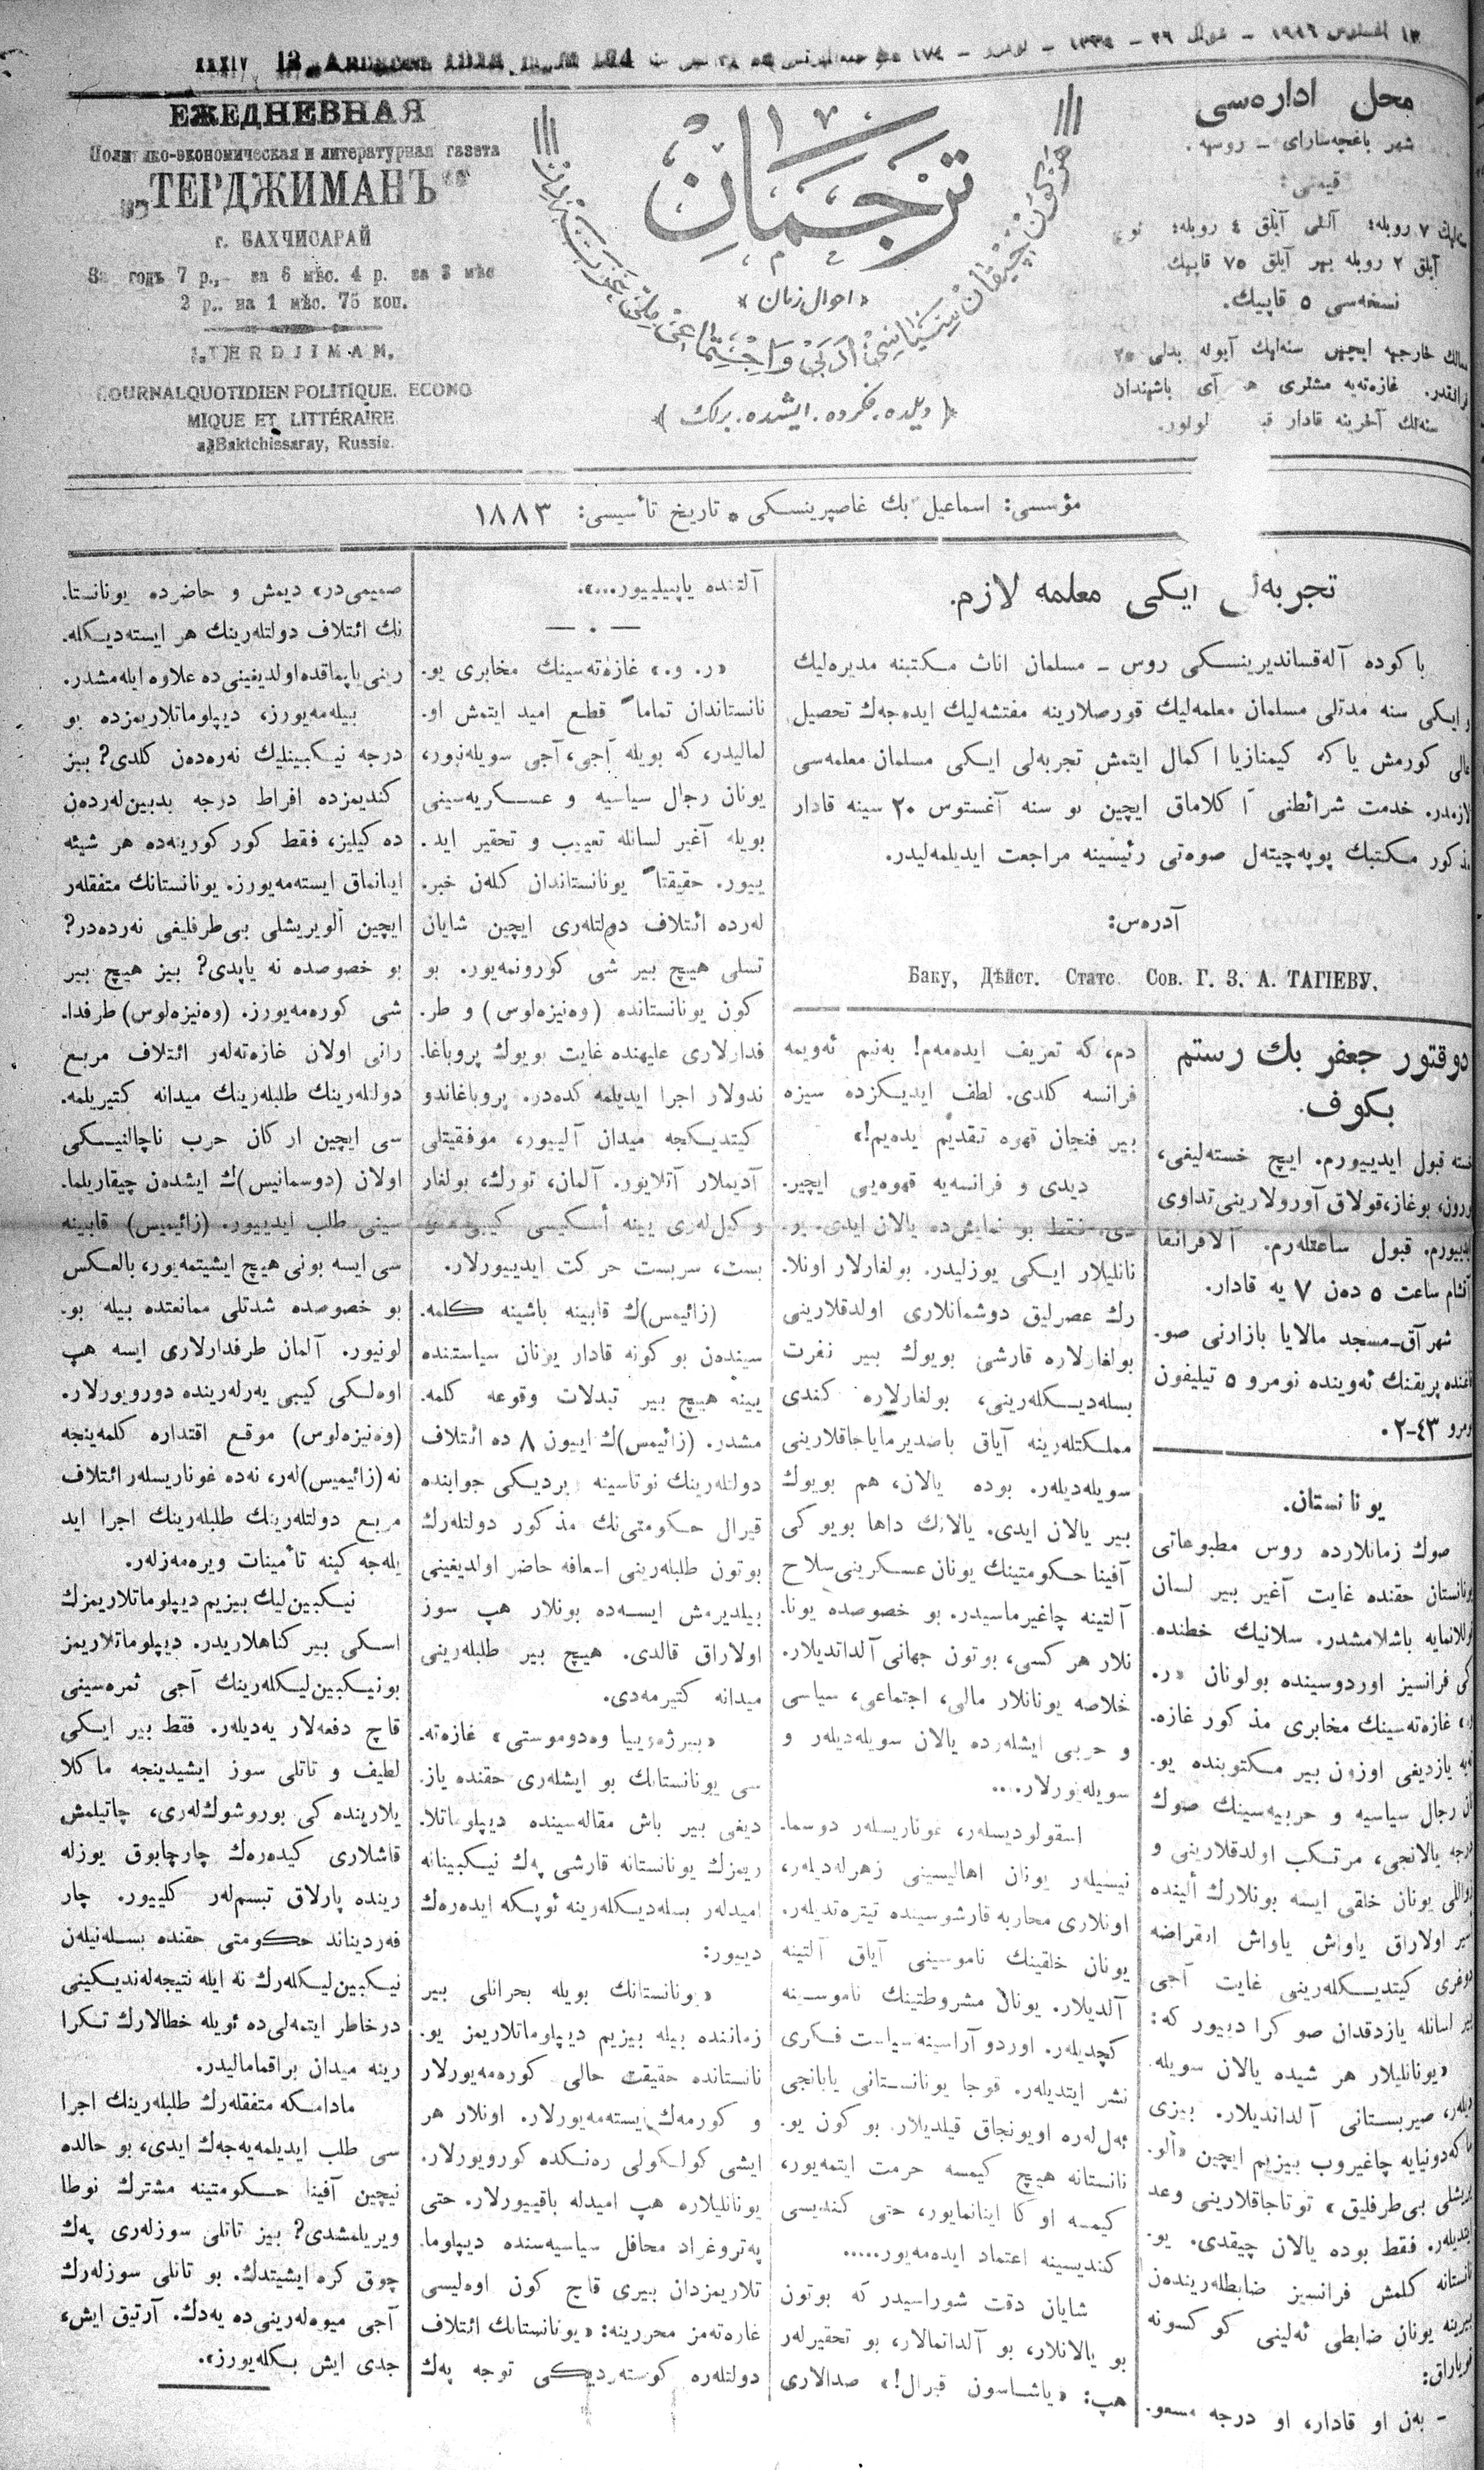 محل اداره‌سی
شهر باغچه‌سارای ـ روسیه.
قیمتی:
۷ روبله؛ آلتی آیلق ٤ روبله؛
آیلق ۲ روبله بیر آیلق ۷٥ قاپیك
نسخه‌سی ٥ قاپیك.
ترجمان
«احوال زمان»
﴿دیلده. فکرده. ایشده. برلك﴾
XXXIV
ЕЖЕДНЕВНАЯ
Политико-экономическая и литературная газета
„ТЕРДЖИМАНЪ“
г. БАХЧИСАРАЙ
За годъ 7 р., за 6 мѣс. 4 р. за 3 мѣс
2 р.. на 1 мѣс. 75 коп.
JOURNALQUOTIDIEN POLITIQUE. ECONO
MIQUE ET LITTÉRAIRE
a Baktchissaray, Russie.
مؤسسی: اسماعیل بك غاصپرینسکی * تاریخ تأسیسی: ۱۸۸۳
ایکی معلمه لازم.
باکوده آله‌قساندیرینسکی روس ـ مسلمان اناث مکتبنه مدیره‌لیك
ایکی سنه مدتلی مسلمان معلمه‌لیك قورصلارینه مفتشه‌لیك ایده‌جه‌ك تحصیل
عالی کورمش یا که کیمنازیا اکمال ایتمش تجربه‌لی ایکی مسلمان معلمه‌سی
لازمدر. خدمت شرائطنی آکلاماق ایچین بو سنه آغستوس ۲۰ سینه قادار
مذکور مکتبك پوپه‌چیته‌ل صوه‌تی رئیسینه مراجعت ایدیلمه‌لیدر.
آدره‌س:
Баку, Дѣйст. Статс. Сов. Г. З. А. ТАГІЕВУ.
دوقتور جعفر بك رستم
بکوف.
قبول ایدییورم. ایچ خسته‌لیغی،
بوغاز، قولاق آورولارینی تداوی
قبول ساعتله‌رم. آلافرانقا
آقشام ساعت ٥ ده‌ن ۷ یه قادار.
شهر آق‌ـ‌مسجد مالایا بازارنی صو.
پریقنك ئه‌وینده نومرو ٥ تیلیفون
٤۳ـ۲۰
یونانستان.
صوك زمانلارده روس مطبوعاتی
یونانستان حقنده غایت آغیر بیر لسان
قوللانمایه باشلامشدر. سلانیك خطنده
کی فرانسیز اوردوسینده بولونان «ر.
غازه‌ته‌سینك مخابری مذکور غازه.
یازدیغی اوزون بیر مکتوبنده یو.
رجال سیاسیه و حربیه‌سینك صوك
درجه یالانجی، مرتکب اولدقلارینی و
یونان خلقی ایسه بونلارك ألینده
اولاراق یاواش یاواش انقراضه
دوغری کیتدیکله‌رینی غایت آجی
بیر لسانله یازدقدان صوکرا دییور که:
«یونانلیلار هر شیده یالان سویله.
صیربستانی آلداندیلار. بیزی
چاغیروب بیزیم ایچین «ألو.
بی‌طرفلیق» توتاجاقلارینی وعد
ایتدیله‌ر. فقط بوده یالان چیقدی. یو.
نانستانه کلمش فرانسیز ضابطله‌رینده‌ن
بیرینه یونان ضابطی ئه‌لینی کوکسونه
قویاراق:
ـ به‌ن او قادار، او درجه مسعو.
دم، که تعریف ایده‌مه‌م! به‌نیم ئه‌ویمه
فرانسه کلدی. لطف ایدیکزده سیزه
بیر فنجان قهوه تقدیم ایده‌یم!»
دیدی و فرانسه‌یه قهوه‌یی ایچیر.
دی. فقط بو نمایش‌ده یالان ایدی. یو.
نانلیلار ایکی یوزلیدر. بولغارلار اونلا.
رك عصرلیق دوشمانلاری اولدقلارینی
بولغارلاره قارشی بویوك بیر نفرت
بسله‌دیکله‌رینی، بولغارلاره کندی
مملکتله‌رینه آیاق باصدیرمایاجاقلارینی
سویله‌دیله‌ر. بوده یالان، هم بویوك
بیر یالان ایدی. یالانك داها بویوکی
آفینا حکومتینك یونان عسکرینی سلاح
آلتینه چاغیرماسیدر. بو خصوصده یونا.
نلار هر کسی، بوتون جهانی آلداندیلار.
خلاصه یونانلار مالی، اجتماعی، سیاسی
و حربی ایشله‌رده یالان سویله‌دیله‌ر و
سویله‌یورلار....
اسقولودیسله‌ر، غوناریسله‌ر دوسما.
نیسیله‌ر یونان اهالیسینی زهرله‌دیله‌ر،
اونلاری محاربه قارشوسینده تیتره‌تدیله‌ر.
یونان خلقینك ناموسینی آیاق آلتینه
آلدیلار. یونان مشروطتینك ناموسینه
کچدیله‌ر. اوردو آراسینه سیاست فکری
نشر ایتدیله‌ر. قوجا یونانستانی یابانجی
ئه‌ل‌له‌ره اویونجاق قیلدیلار. بو کون یو.
نانستانه هیچ کیمسه حرمت ایتمه‌یور،
کیمسه اوکا اینانمایور، حتی کندیسی
کندیسینه اعتماد ایده‌مه‌یور.....
شایان دقت شوراسیدر که بوتون
بو یالانلار، بو آلدانمالار، بو تحقیرله‌ر
هپ: «یاشاسون قیرال!» صدالاری
آلتنده یاپیلییور...».
«ر. و.» غازه‌ته‌سینك مخابری یو.
نانستاندان تماماً قطع امید ایتمش او.
لمالیدر، که بویله آجی، آجی سویله‌یور،
یونان رجال سیاسیه و عسکریه‌سینی
بویله آغیر لسانله تعییب و تحقیر اید.
ییور. حقیقتاً یونانستاندان کله‌ن خبر.
له‌رده ائتلاف دولتله‌ری ایچین شایان
تسلی هیچ بیر شی کورونمه‌یور. بو
کون یونانستانده (وه‌نیزه‌لوس) و طر.
فدارلاری علیهنده غایت بویوك پروباغا.
ندولار اجرا ایدیلمه‌کده‌در. پروباغاندو
کیتدیکجه میدان آلییور، موفقیتلی
آدیملار آتلایور. آلمان، تورك، بولغار
وکیل‌له‌ری یینه أسکیسی کیبی
بست، سربست حرکت ایدییورلار.
(زائیمس)ك قابینه باشینه کلمه.
سینده‌ن بو کونه قادار یونان سیاستنده
یینه هیچ بیر تبدلات وقوعه کلمه.
مشدر. (زائیمس)ك اییون ۸ ده ائتلاف
دولتله‌رینك نوتاسینه بردیکی جوابنده
قیرال حکومتی‌نك مذکور دولتله‌رك
بوتون طلبله‌رینی اسعافه حاضر اولدیغینی
بیلدیرمش ایسه‌ده بونلار هپ سوز
اولاراق قالدی. هیچ بیر طلبله‌رینی
میدانه کتیرمه‌دی.
«بیرژه‌وییا وه‌دوموستی» غازه‌ته.
سی یونانستانك بو ایشله‌ری حقنده یاز.
دیغی بیر باش مقاله‌سینده دیپلوماتلا.
ریمزك یونانستانه قارشی په‌ك نیکبینانه
امیدله‌ر بسله‌دیکله‌رینه ئوپکه ایده‌ره‌ك
دییور:
«یونانستانك بویله بحرانلی بیر
زماننده بیله بیزیم دیپلوماتلاریمز یو.
نانستانده حقیقت حالی کوره‌مه‌یورلار
و کورمه‌ك ایسته‌مه‌یورلار. اونلار هر
ایشی کولکولی ره‌نکده کورویورلار.
یونانلیلاره هپ امیدله باقییورلار. حتی
په‌تروغراد محافل سیاسیه‌سنده دیپلوما.
تلاریمزدان بیری قاچ کون اوه‌لیسی
غازه‌ته‌مز محررینه: «یونانستانك ائتلاف
دولتله‌ره کوسته‌ردیکی توجه په‌ك
صمیمی‌در» دیمش و حاضرده یونانستا.
نك ائتلاف دولتله‌رینك هر ایسته‌دیکله.
رینی یاپماقده اولدیغینی ده علاوه ایله‌مشدر.
بیله‌مه‌یورز، دیپلوماتلاریمزده بو
درجه نیکبینلیك نه‌ره‌ده‌ن کلدی؟ بیز
کندیمزده افراط درجه بدبین‌له‌رده‌ن
ده کیلیز، فقط کور کورینه‌ده هر شیئه
اینانماق ایسته‌مه‌یورز. یونانستانك متفقله‌ر
ایچین ألویریشلی بی‌طرفلیغی نه‌رده‌در؟
بو خصوصده نه یاپدی؟ بیز هیچ بیر
شی کوره‌مه‌یورز. (وه‌نیزه‌لوس) طرفدا.
رانی اولان غازه‌ته‌له‌ر ائتلاف مربع
دولتله‌رینك طلبله‌رینك میدانه کتیریلمه.
سی ایچین ارکان حرب ناچالنیکی
اولان (دوسمانیس)ك ایشده‌ن چیقاریلما.
سینی طلب ایدییور. (زائیمیس) قابینه
سی ایسه بونی هیچ ایشیتمه‌یور، بالعکس
بو خصوصده شدتلی ممانعتده بیله بو.
لونیور. آلمان طرفدارلاری ایسه هپ
اوه‌لکی کیبی یه‌رله‌رینده دورویورلار.
(وه‌نیزه‌لوس) موقع اقتداره کلمه‌ینجه
نه (زائیمیس)له‌ر، نه‌ده غوناریسله‌ر ائتلاف
مربع دولتله‌رینك طلبله‌رینك اجرا اید
یله‌جه‌کینه تأمینات ویره‌مه‌زله‌ر.
نیکبین‌لیك بیزیم دیپلوماتلاریمزك
اسکی بیر کناهلاریدر. دیپلوماتلاریمز
بو نیکبین‌لیکله‌رینك آجی ثمره‌سینی
قاچ دفعه‌لار یه‌دیله‌ر. فقط بیر ایکی
لطیف و تاتلی سوز ایشیدینجه
یلارینده کی بوروشوك‌له‌ری، چاتیلمش
قاشلاری کیده‌ره‌ك چارچابوق یوزله
رینده پارلاق تبسم‌له‌ر کلییور. چار
فه‌ردیناند حکومتی حقنده بسله‌نیله‌ن
نیکبین‌لیکله‌رك نه ایله نتیجه‌له‌ندیکینی
درخاطر ایتمه‌لی ده ئویله خطالارك تکرا
رینه میدان براقمامالیدر.
مادامکه متفقله‌رك طلبله‌رینك اجرا
سی طلب ایدیلمه‌یه‌جه‌ك ایدی، بو حالده
نیچین آفینا حکومتینه مشترك نوطا
ویریلمشدی؟ بیز تاتلی سوزله‌ری په‌ك
چوق کره ایشیتدك. بو تاتلی سوزله‌رك
آجی میوه‌له‌رینی ده یه‌دك. آرتیق ایش،
جدی ایش بکله‌یورز».